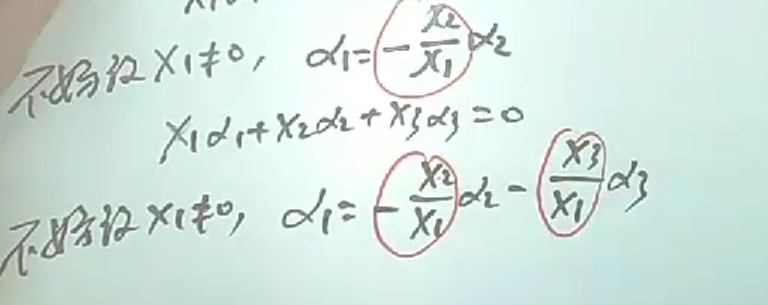 不妨设 x₁≠0, α₁=-x₂/x₁ α₂
x₁α₁+x₂α₂+x₃α₃=0
不妨设 x₁≠0, α₁=-x₂/x₁ α₂ - x₃/x₁ α₃